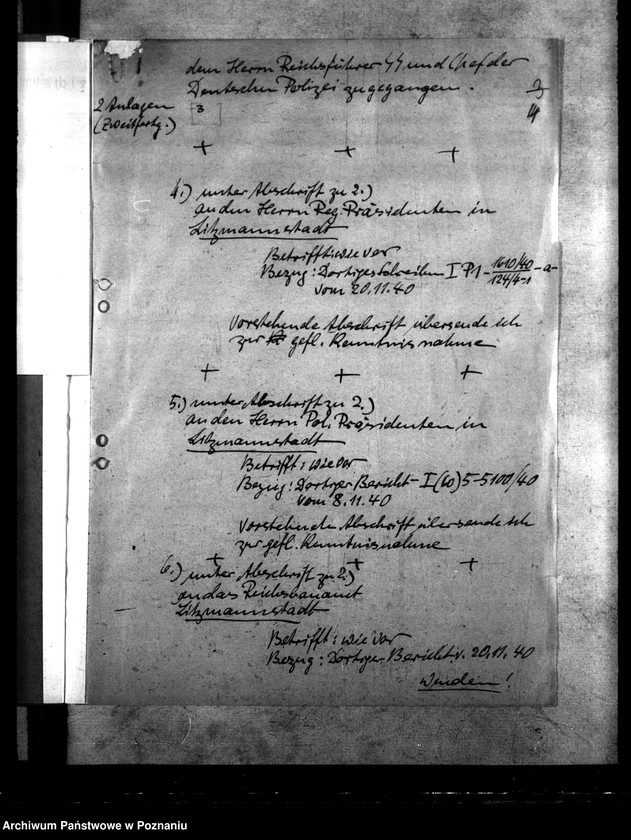 dem Herrn Reichsführer SS und Chef der
Deutschen Polizei zugegangen.
2 Anlagen
(Zweitfertg.)
3
4.) unter Abschrift zu 2.)
an den Herrn Reg. Präsidenten in
Litzmannstadt
Betrifft: wie vor
Bezug: Dortiges Schreiben I P1 - 1610/40 124/4-1 - a -
vom 20.11.40
Vorstehende Abschrift übersende ich
zur gefl. Kenntnisnahme
5.) unter Abschrift zu 2.)
an den Herrn Pol. Präsidenten in
Litzmannstadt
Betrifft: wie vor
Bezug: Dortiger Bericht - I (W) 5-5100/40
vom 8.11.40
Vorstehende Abschrift übersende ich
zur gefl. Kenntnisnahme
6.) unter Abschrift zu 2.)
an das Reichsbauamt
Litzmannstadt
Betrifft: wie vor
Bezug: Dortiger Bericht v. 20.11.40
Wenden!
Archiwum Państwowe w Poznaniu